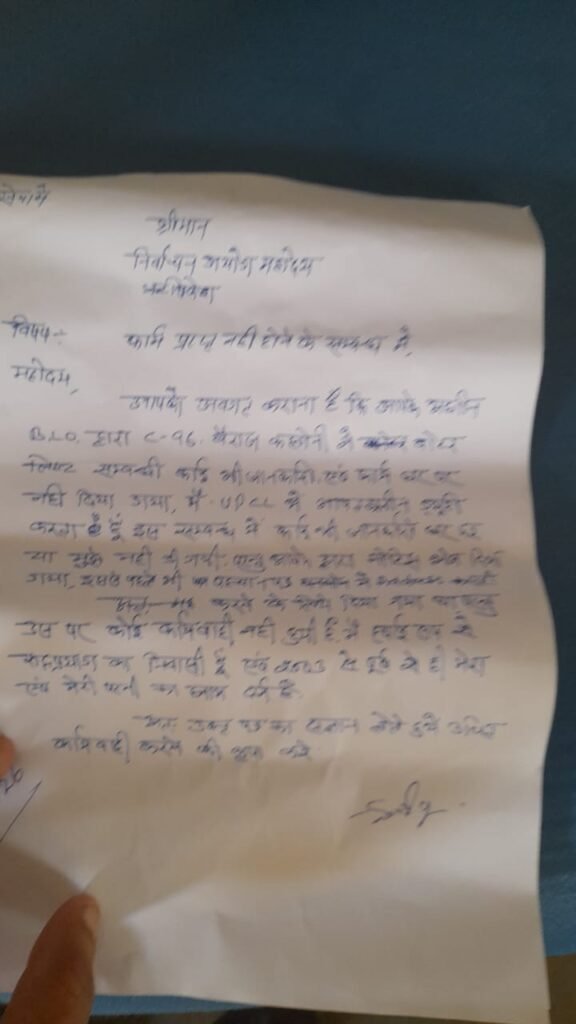 सेवामें
श्रीमान
निर्वाचन आयोग महोदय
विषय:- फार्म प्राप्त नही होने के सम्बन्ध में,
महोदय,
आपको अवगत कराना है कि आपके अधीन
B.L.O. द्वारा C-96. बैराज कालोनी में वोटर
लिस्ट सम्बन्धी कोई भी जानकारी एवं फार्म घर पर
नही दिया गया, मैं UPCL में डयूटी
करता हूँ इस सम्बन्ध में कोई भी जानकारी घर पर
या मुझे नही दी गयी. परन्तु आपके द्वारा नोटिस भेज दिया
गया, इससे पहले भी
करने के लिये दिया गया था परन्तु
उस पर कोई कार्यवाही नही हुयी है, मैं स्थाई रूप से
रूद्रप्रयाग का निवासी हूँ एवं 2003 से पूर्व से ही मेरा
एवं मेरी पत्नी का नाम दर्ज है.
अतः उक्त पत्र का संज्ञान लेते हुये उचित
कार्यवाही करने की कृपा करे